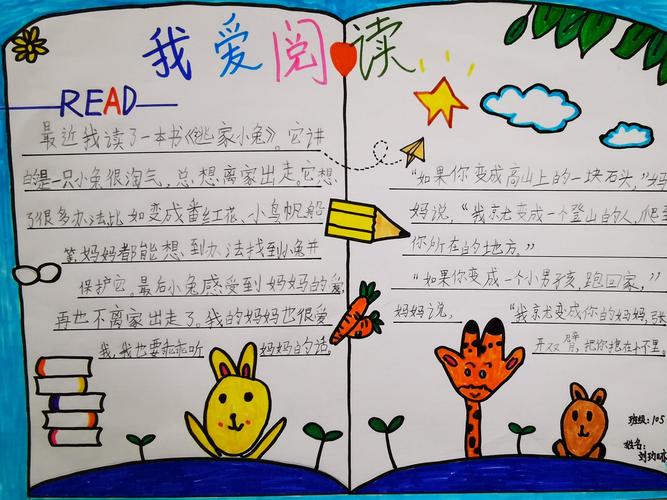 我爱阅读
READ
最近我读了一本书《逃家小兔》。它讲
的是一只小兔很淘气,总想离家出走。它想
了很多办法比如变成番红花、小鸟帆船
等妈妈都能想到办法找到小兔并
保护它。最后小兔感受到妈妈的爱
再也不离家出走了。我的妈妈也很爱
我,我也要乖乖听妈妈的话。
“如果你变成高山上的一块石头,”妈
妈说,“我就变成一个登山的人,爬
你所在的地方。”
“如果你变成一个小男孩,跑回家,”
妈妈说,“我就变成你的妈妈,张
开双臂,把你抱在怀里。
班级:105
姓名:
刘